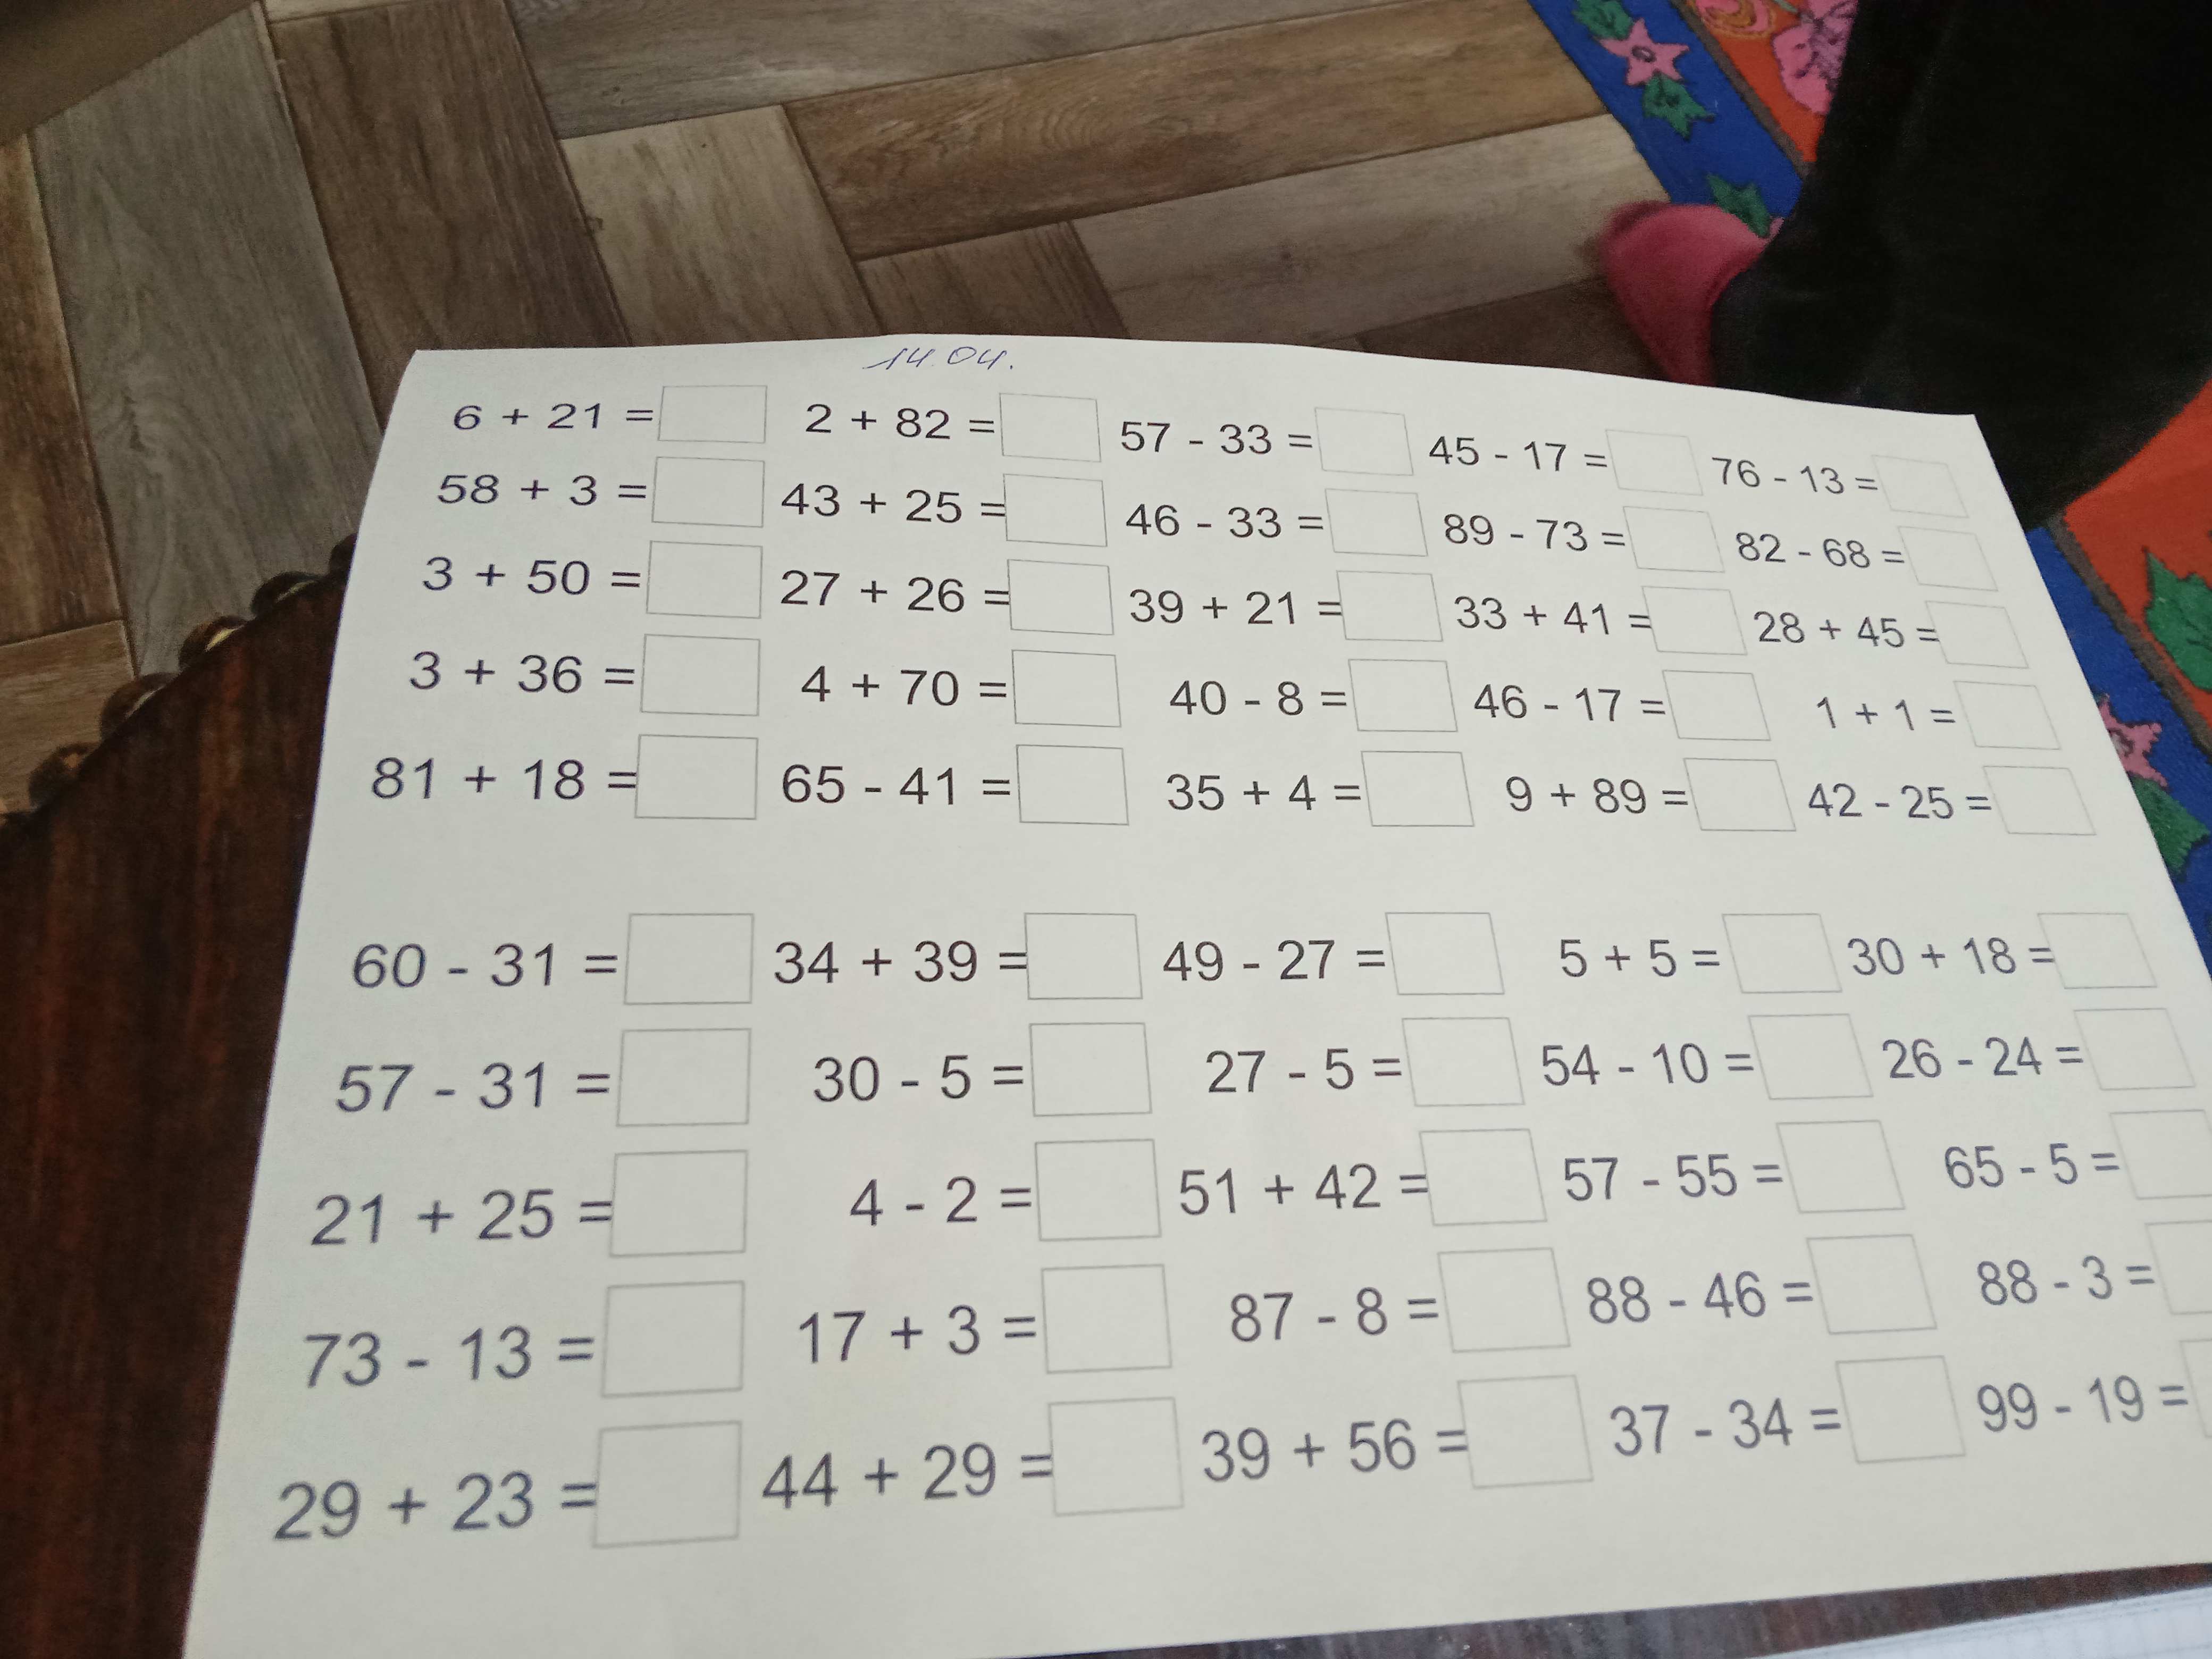 14.04.
6 + 21 = 2 + 82 = 57 - 33 = 45 - 17 = 76 - 13 =
58 + 3 = 43 + 25 = 46 - 33 = 89 - 73 = 82 - 68 =
3 + 50 = 27 + 26 = 39 + 21 = 33 + 41 = 28 + 45 =
3 + 36 = 4 + 70 = 40 - 8 = 46 - 17 = 1 + 1 =
81 + 18 = 65 - 41 = 35 + 4 = 9 + 89 = 42 - 25 =
60 - 31 = 34 + 39 = 49 - 27 = 5 + 5 = 30 + 18 =
57 - 31 = 30 - 5 = 27 - 5 = 54 - 10 = 26 - 24 =
21 + 25 = 4 - 2 = 51 + 42 = 57 - 55 = 65 - 5 =
73 - 13 = 17 + 3 = 87 - 8 = 88 - 46 = 88 - 3 =
29 + 23 = 44 + 29 = 39 + 56 = 37 - 34 = 99 - 19 =